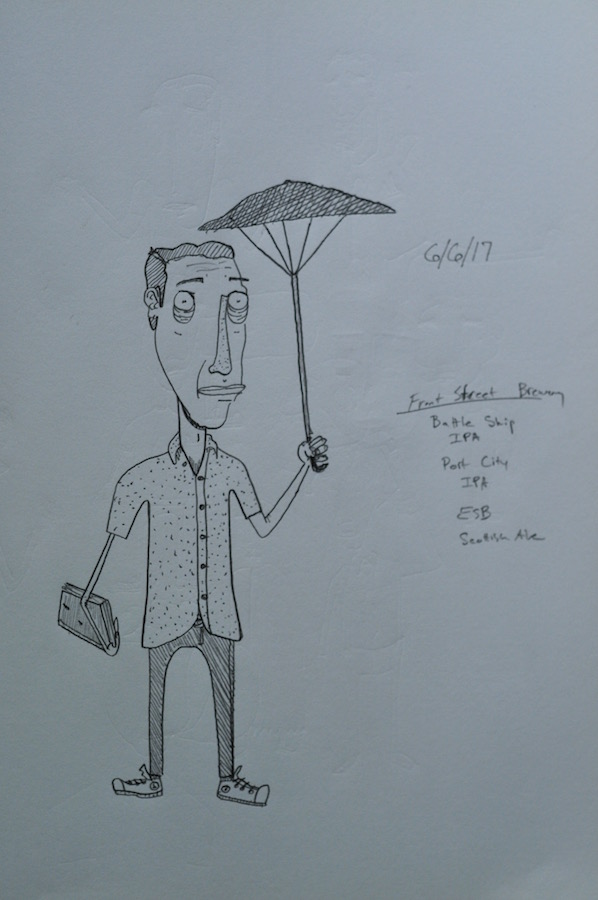 6/6/17
Front Street Brewery
Battle Ship
IPA
Port City
IPA
ESB
Scottish Ale